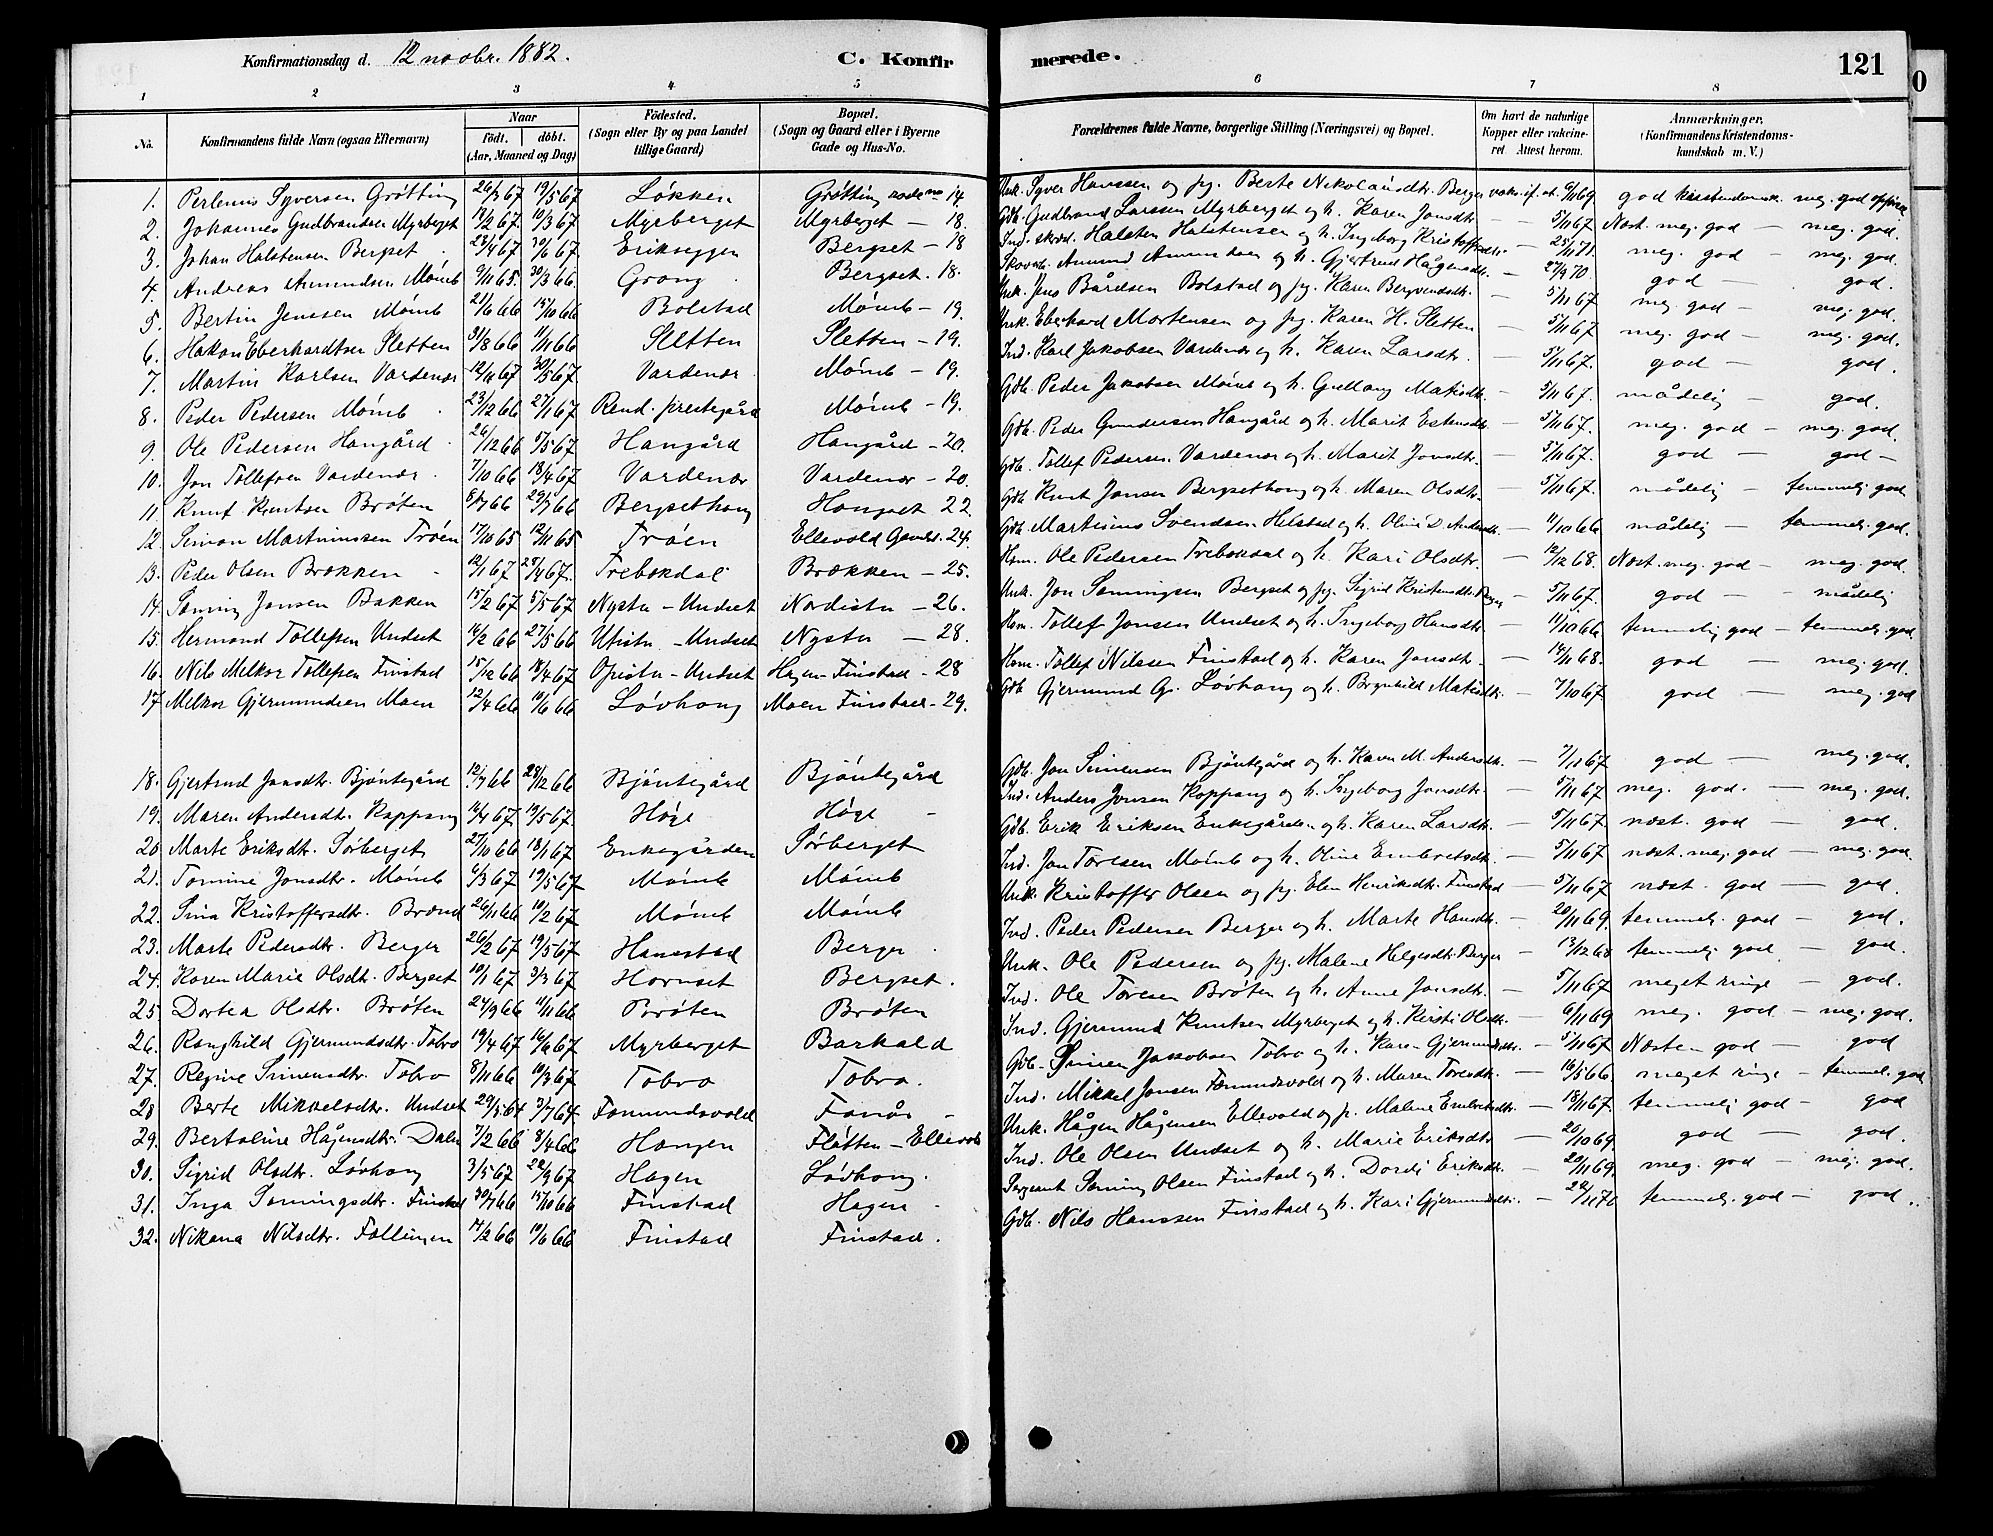 Konfirmationsdag d. 12 novbr. 1882. C. Konfirmerede. 121
1 2 3 4 5 6 7 8
No. Konfirmandens fulde Navn (ogsaa Efternavn) Naar födt. döbt. (Aar, Maaned og Dag) Födested. (Sogn eller By og paa Landet tillige Gaard) Bopæl. (Sogn og Gaard eller i Byerne Gade og Hus-No. Forældrenes fulde Navne, borgerlige Stilling (Næringsvei) og Bopæl. Om havt de naturlige Kopper eller vakcineret. Attest herom. Anmærkninger. (Konfirmandens Kristendomskundskab m. V.)
1. Perlenus Syversen Grötting 26/3 67 19/5 67 Løkken Grötting rode no 14 Unk. Syver Hanssen og pg. Berte Nikolausdtr. Berger vaks. if. at. 9/11 69 god kristendomsk. meg. god opförs.
2. Johannes Gudbrandsen Myrberget 12/2 67. 10/3 67 Myrberget Myrberget — 18. Gdb. Gudbrand Larssen Myrberget og h. Karen Jonsdtr. — 5/11 67 Næst. meg. god — meg. god.
3. Johan Halstensen Bergset 23/4 67 30/6 67. Erikseggen Bergset — 18 Ind. skræd. Halsten Halstensen og h. Ingeborg Kristoffersdtr. — 25/11 71. meg. god — meg. god.
4. Andreas Amundsen Mömb 9/11 65. 30/3 66. Grong Bergset. 18. Skovarb. Amund Amundsen og h. Gjertrud Hågensdtr. — 27/9 70. god — god.
5. Bertin Jenssen Mömb 21/6 66 15/10 66 Bolstad Mömb — 19. Unk. Jens Bårdsen Bolstad og pg. Karen Bergvendsdtr. — 5/11 67 meg. god — meg. god.
6. Håkon Eberhardtsen Sletten 31/8 66 11/11 66 Sletten Sletten — 19. Unk. Eberhard Mortensen og pg. Karen H. Sletten — 5/11 67 meg. god — meg. god.
7. Martin Karlsen Vardenær 12/11 67 30/5 67. Vardenær Mömb — 19. Ind. Karl Jakobsen Vardenær og h. Karen Larsdtr. — 5/11 67. god — god.
8. Peder Pedersen Mömb 23/12 66 27/1 67. Rend. prestegård Mömb — 19. Gdb. Peder Jakobsen Mömb og h. Gullaug Matisdtr. — 5/11 67. mådelig — god.
9. Ole Pedersen Hangård 26/12 66 5/5 67. Hangård Hangård — 20. Gdb. Peder Gundersen Hangård og h. Marit Estensdtr. — 5/11 67. meg. god — meg. god.
10. Jon Tollefsen Vardenær 7/10 66 18/4 67 Vardenær Vardenær — 20. Gdb. Tollef Pedersen Vardenær og h. Marit Jonsdtr. — 5/11 67. god — god —
11. Knut Knutsen Bröten 8/7 66 29/7 66 Bergsethoug Hougset 22. Gdb. Knut Jonsen Bergsethoug og h. Maren Olsdtr. — 5/11 67. mådelig — temmelig god
12. Simon Martinussen Tröen 17/10 65 12/11 65 Tröen Ellevold 24. Gdb. Martinus Svendsen Helstad og h. Oline D. Andersdtr. — 11/10 66 mådelig — temmel. god.
13. Peder Olsen Brækken 12/1 67 28/4 67. Trebækdal Brækken — 25. Hsm. Ole Pedersen Trebækdal og h. Kari Olsdtr. — 12/12 68. Næst. meg. god — meg. god.
14. Sæming Jonsen Bakken 15/2 67 5/5 67. Nystu — Undset Nordistu — 26. Unk. Jon Sæmingsen Bergset og pg. Sigrid Kristensdtr. — 5/11 67. god — mådelig
15. Hermand Tollefsen Undset 16/2 66 27/5 66 Utistu — Undset Nystu — 28. Hsm. Tollef Jonsen Undset og h. Ingeborg Hansdtr. — 11/10 66 temmelig god — temmel. god
16. Nils Melkor Tollefsen Finstad 15/12 66 18/4 67. Opistu — Undset Hagen Finstad — 28 Hsm. Tollef Nilssen Finstad og h. Karen Jonsdtr. — 14/11 68. god — meg. god.
17 Melkor Gjermundsen Moen 12/4 66 10/6 66 Lövhoug Moen Finstad — 29. Gdb Gjermund G. Lövhoug og h. Brynhild Matisdtr. — 7/10 67. god — meg. god
18. Gjertrud Jonsdtr. Bjöntegård 12/7 66 28/12 66 Bjöntegård Bjöntegård Gdb. Jon Simensen Bjöntegård og h. Karen M. Andersdtr. — 7/11 67 god — meg. god.
19. Maren Andersdtr. Koppang 16/4 67 19/5 67. Høge Høge — Ind. Anders Jonsen Koppang og h. Ingeborg Jonsdtr. — 5/11 67 meg. god. — meg. god.
20 Marte Eriksdtr. Sörberget 27/10 66 18/1 67. Enkegården Sörberget Gdb. Erik Eriksen Enkegården og h. Karen Larsdtr. — 5/11 67. næst. god — god.
21. Tomine Jonsdtr. Mömb 6/3 67. 19/5 67. Mömb Mömb Ind. Jon Toresen Mömb og h. Oline Embretsdtr. — 5/11 67 næst. meg. god — meg. god.
22. Sina Kristoffersdtr. Brænd 26/11 66 10/2 67. Mömb Mömb Unk. Kristoffer Olsen og pg. Elen Henriksdtr. Finstad — 5/11 67 næst. god — god.
23. Marte Pedersdtr. Berger 26/2 67. 19/5 67. Hanestad Berger. Ind. Peder Pedersen Berger og h. Marte Hansdtr. — 20/11 69. temmel. god — god.
24. Karen Marie Olsdtr. Bergset 10/1 67 3/3 67 Hornset Bergset. Unk. Ole Pedersen og pg. Malene Helgesdtr. Berger — 13/12 68 temmelig god — god.
25. Dortea Olsdtr. Bröten 24/9 66 11/11 66 Bröten Bröten Ind. Ole Toresen Bröten og h. Anne Jonsdtr. — 5/11 67 meget ringe — god.
26. Ranghild Gjermundsdtr. Tobro 19/4 67 16/6 67. Myrberget Barkald Ind. Gjermund Knutsen Myrberget og h. Kersti Olsdtr. — 6/11 69 meg. god — meg. god.
27. Regine Simensdtr. Tobro 8/11 66 10/3 67 Tobro Tobro. Gdb. Simen Jakobsen Tobro og h. Karen Gjermundsdtr. — 5/11 67 Næsten god — god
28 Berte Mikkelsdtr. Undset 29/5 64 3/7 64. Fæmundsvold Fanås — Ind. Mikkel Jonsen Fæmundsvold og h. Maren Toresdtr. — 16/5 66 meget ringe — temmel. god
29. Bertoline Hågensdtr. Dalen 7/2 66 8/4 66 Hangen Flötten — Ellevold Unk. Hågen Hågensen Ellevold og p. Malene Embretsdtr. — 18/11 67. temmelig god — god
30. Sigrid Olsdtr. Lövhoug 3/5 67. 22/9 67 Hagen Lövhoug. Ind. Ole Olsen Undset og h. Marie Eriksdtr. — 20/10 69. god — god.
31. Inga Sæmingsdtr. Finstad 30/7 66 15/10 66 Finstad Hagen — Sergeant Sæming Olsen Finstad og h. Dordi Eriksdtr. — 20/11 69. meg. god — meg. god.
32. Nikana Nilsdtr. Follingen 14/2 66 10/6 66 Finstad Finstad. Gdb. Nils Hanssen Finstad og h. Kari Gjermundsdtr. — 22/11 70 temmel. god — god.